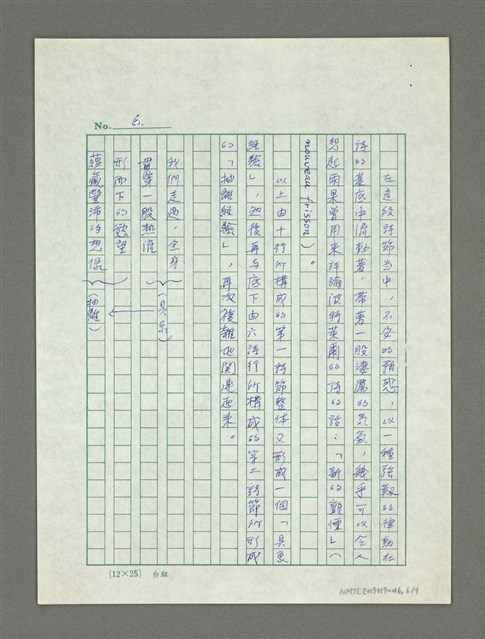 No. 6.
在這段詩節當中,不安的預恐,以一種強靱的律動在
詩的基底中流動著,帶著一股淒厲的氣氛,幾乎可以令人
想起雨果曾用來評論波特萊爾的詩的話:「新的顫慄」(
nouveau frisson)。
以上由十行所構成的第一詩節整体又形成一個「具象
經驗」,然後再与底下由六詩行所構成的第二詩節所形成
的「抽離經驗」,再次複雜地関連起來。
我們走過,全身
貫穿一股熱流
(具象)
形而下的慾望
蘊藏豐沛的想像
(抽離)
(12×25) 台組
NMTL20190190046_6/9